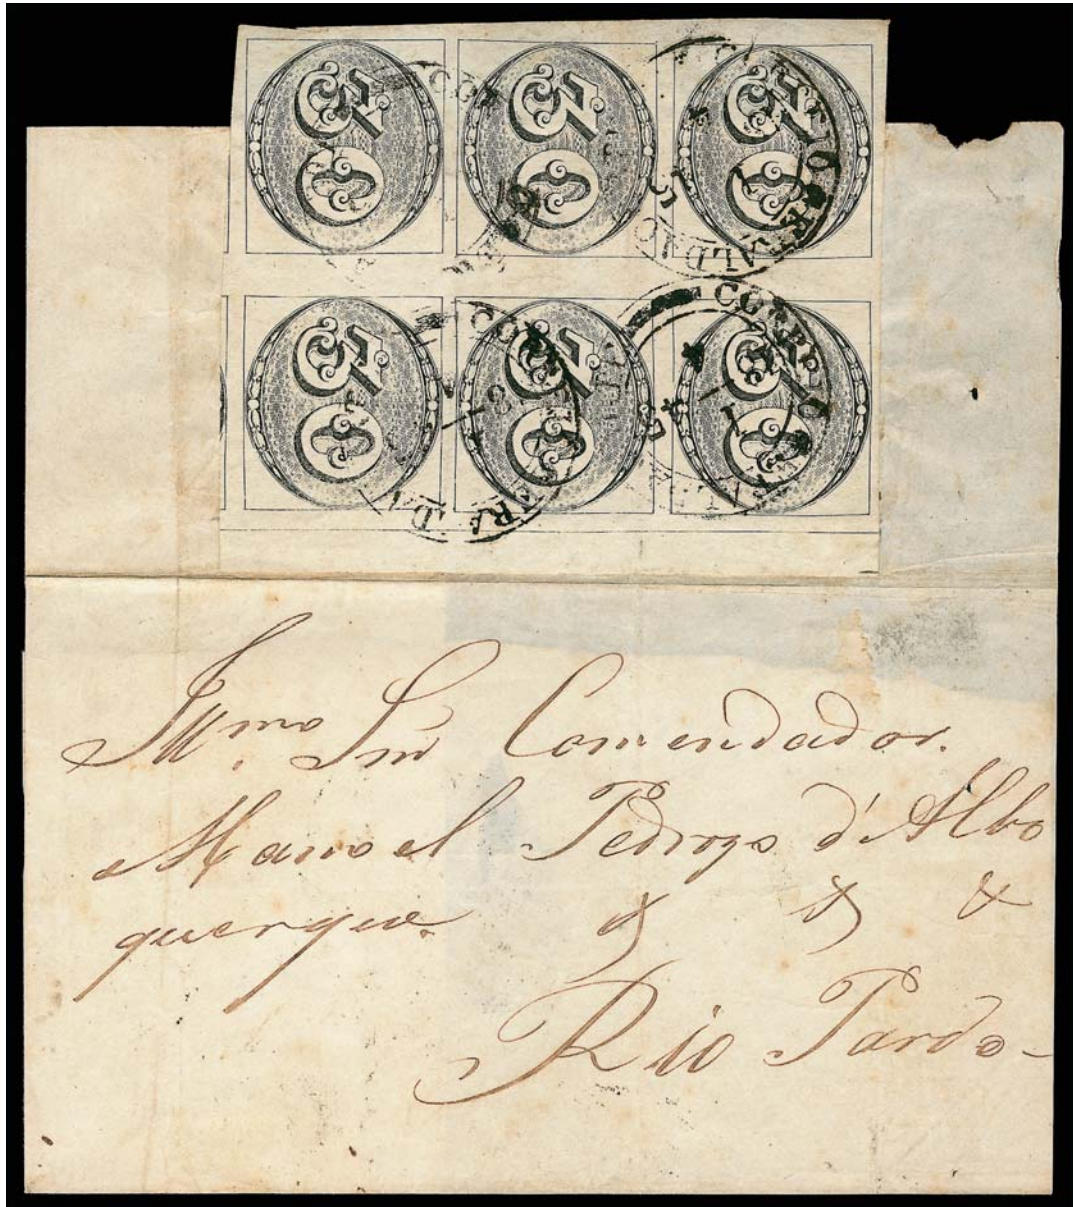 30 30 30
30 30 30
CORREIO
CORREIO
Illmo. Snr Comendador.
Manoel Pedrozo d'Albo
querque. & & &
Rio Pardo-